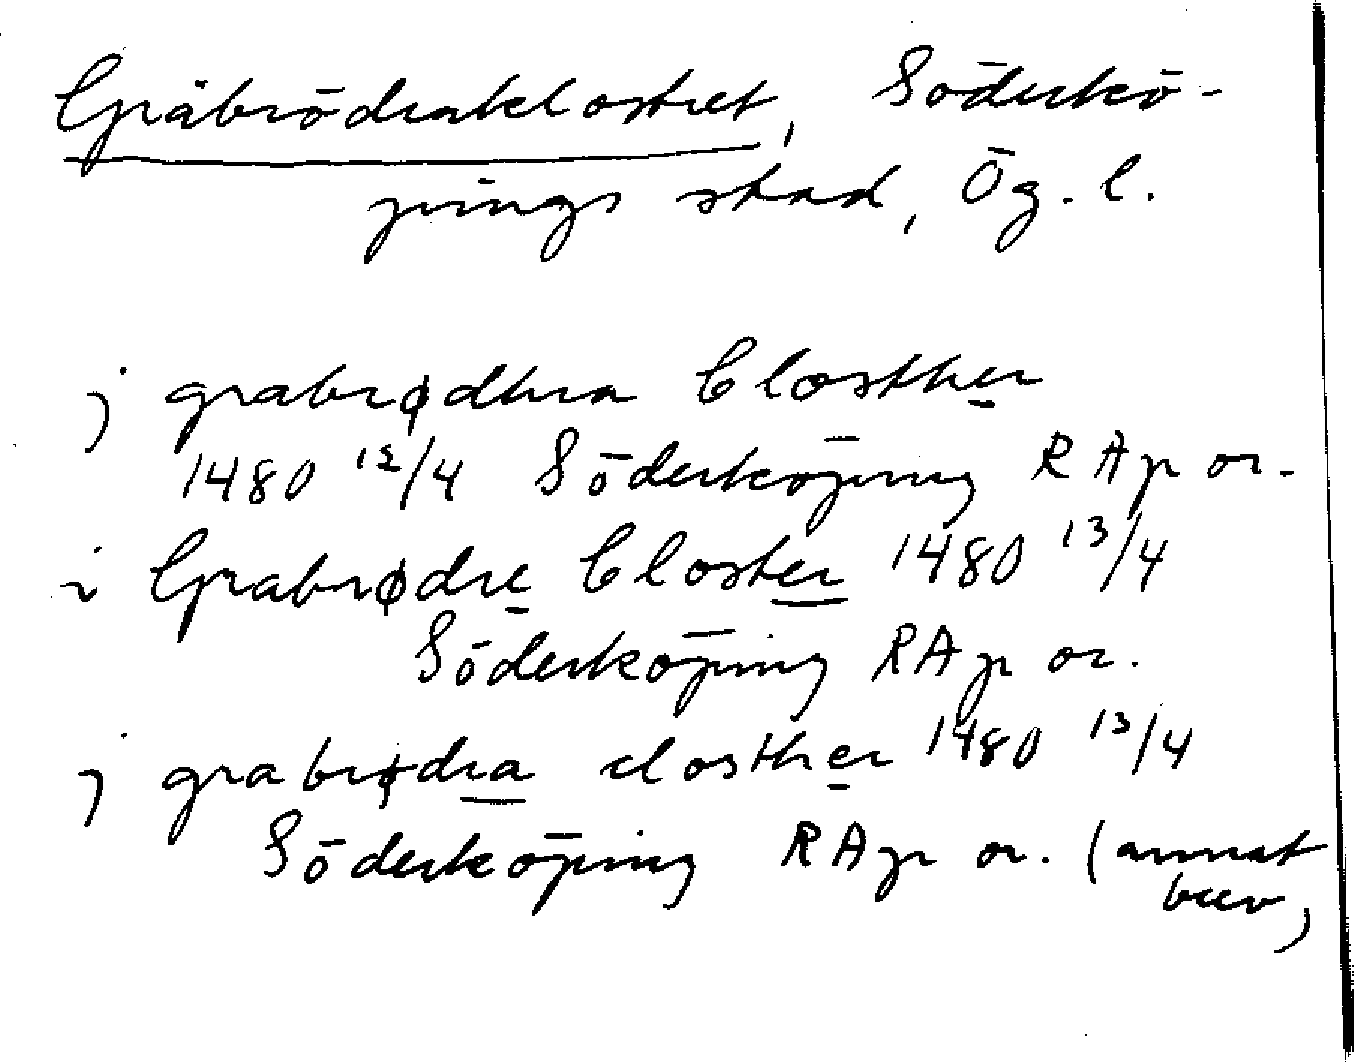 Gråbrödraklostret, Söderkö-
pings stad, Ög. l.
j grabrødhra Closther
1480 12/4 Söderköping RAp or.
i Grabrødre Closter 1480 13/4
Söderköping RAp or.
j grabrødra closther 1480 13/4
Söderköping RAp or. (annat
brev)